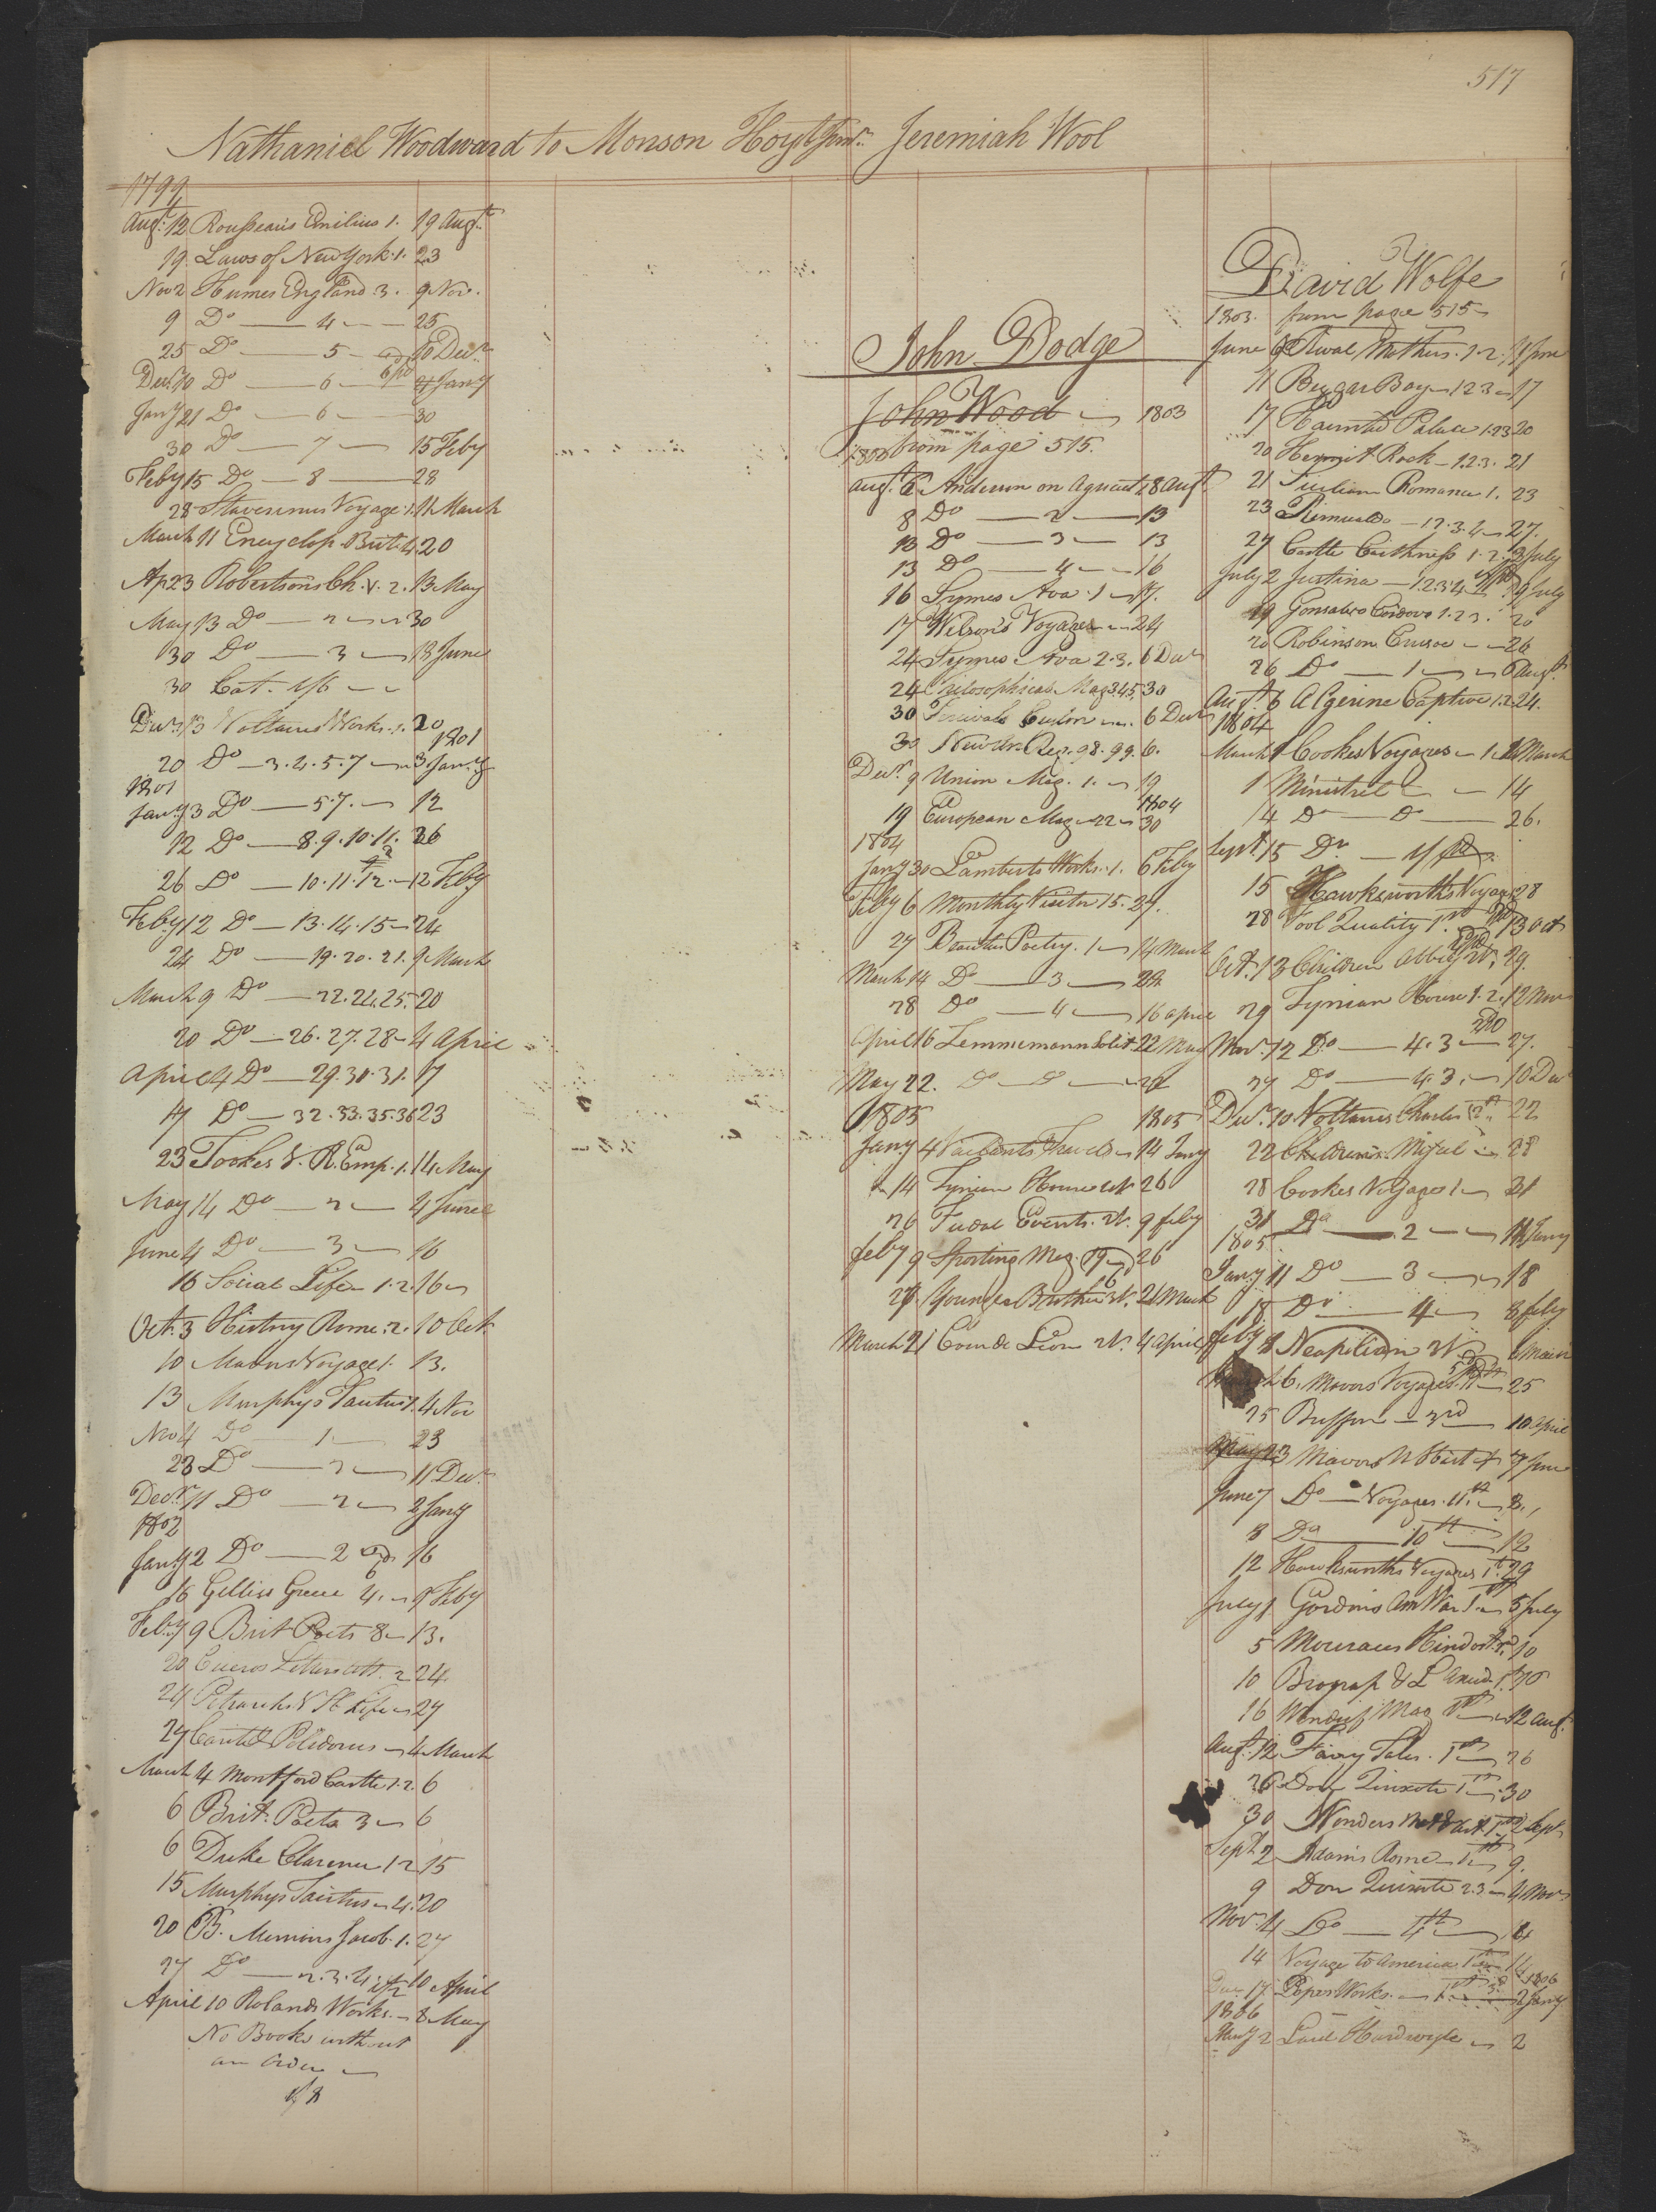 517
Nathaniel Woodward to Monson Hoyt Junr. Jeremiah Wool
1799
Augt. 12 Rousseau's Emilius 1. 19 Augt.
19 Laws of New York. 1. 23
Nov 2 Humes England 3. 9 Nov.
9 Do — 4 — 25
25 Do — 5 — 10 Decr.
Decr. 10 Do — 6 — 21 Jany
Jany 21 Do — 6 — 30
30 Do — 7 — 15 Feby
Feby 15 Do — 8 — 28
28 Stavorinus Voyage 1. 11 March
March 11 Encyclop. Brit. 4 20
Ap 23 Robertsons Ch. V. 2. 13 May
May 13 Do — 2 — 30
30 Do — 3 — 13 June
30 Cat. 1/6
Decr. 13 Voltaires Works. 1. 20
1801
20 Do — 3. 4. 5. 7 — 3 Jany
1801
Jany 3 Do — 5. 7. — 12
12 Do — 8. 9. 10. 11. 26
26 Do — 10. 11. 12. — 12 Feby
Feby 12 Do — 13. 14. 15 — 24
24 Do — 19. 20. 21. 9 March
March 9 Do — 22. 24. 25. 20
20 Do — 26. 27. 28 — 4 April
April 4 Do — 29. 30. 31. 17
17 Do — 32. 33. 35. 36 23
23 Tookes V. R. Emp. 1. 14 May
May 14 Do — 2 — 4 June
June 4 Do — 3 — 16
16 Social Life 1. 2. 16
Oct. 3 History Rome. 2. 10 Oct.
10 Mavors Voyage 1. 13.
13 Murphys Tacitus 1. 4 Nov
Nov 4 Do — 1 — 23
23 Do — 2 — 11 Decr.
Decr. 11 Do — 2 — 2 Jany
1802
Jany 2 Do — 2 16
16 Gillies Greece 4. 9 Feby
Feby 9 Brit Poets 8 — 13.
20 Ciceros Letters Att. 2 24
24 Petrarch 27
27 Polidorus — 4 March
March 4 Montford Castle 1. 2. 6
6 Brit. Poets 3 — 6
6 Duke Clarence 1 2 15
15 Murphys Tacitus 4. 20
20 B. Memoirs Jacob. 1. 27
27 Do — 2. 3. 4. 10 April
April 10 Rolands Works. — 8 May
No Books without
an order
John Dodge
John Wood — 1803
1803 from page 515.
Augt. 6 Anderson on Agricult 8 Augt.
8 Do — 2 — 13
13 Do — 3 — 13
13 Do — 4 — 16
16 Symes Ava. 1 — 17.
17 Wilson's Voyage — 24
24 Symes Ava 2. 3. 6 Decr
24 Philosophical Mag 3. 4. 5 30
30 Percivals Ceylon — 6 Decr
30 New An Reg. 98. 99. 6.
Decr. 9 Union Mag. 1. — 19
1804
19 European Mag — 22 — 30
1804
Jany 30 Lamberts Works. 1. 6 Feby
Feby 6 Monthly Visitor 15. 27.
27 Beauties Poetry. 1 — 14 March
March 14 Do — 3 — 28
28 Do — 4 — 16 April
April 16 Zimmermann Solit. 22 May
May 22. Do — Do
1805 1805
Jany 4 Vaillants Travels — 14 Jany
14 Tynian House 26
26 Feudal Events. 9 feby
feby 9 Sporting Mag. 19 26
26 Younger Brother 21 March
March 21 Coeur de Lion 4 April
David Wolfe
1803. from page 515
June 6 Rival Mothers. 1. 2. 11 June
11 Beggar Boy — 1 2 3 — 17
17 Haunted Palace 1. 2 3 20
20 Hermit Rock — 1. 2. 3. 21
21 Sicilian Romance 1. 23
23 Rimualdo — 1 2. 3. 4 — 27.
27 Castle Caithness 1. 2. July
July 2 Justina — 1. 2. 3. 4 19 July
19 Gonsalvo Cordova 1. 2 3. 20
20 Robinson Crusoe — 26
26 Do — 1 — 6 Augt.
Augt. 6 Algerine Captive 1. 2. 24.
1804
March 1 Cookes Voyages — 1. March
1 Minstrel — 14
14 Do — Do — 26.
Sept. 15 Do
15 Hawksworths Voyages 28
28 Fool Quality 1st 13 Oct
Oct. 13 Children Abbey 29.
29 Tynian House 1. 2. 12 Nov
Nov. 12 Do — 4. 3 — 27.
27 Do — 4. 3. — 10 Decr
Decr. 10 Voltaires Charles 12th 22
22 Children's Miscel — 28
28 Cookes Voyages 1 — 31
31 Do — 2 — 11 Jany
1805.
Jany 11 Do — 3 — 18
18 Do — 4 — 8 feby
feby 8 Neapolitan 6 March
March 6. Mavors Voyages. 25
25 Buffon — 3rd — 10 April
May 23 Mavors N Hist 7 June
June 7 Do — Voyages. 11th — 8.
8 Do — 10th — 12
12 Hawksworths Voyages 1st 29
July 1 Gordons Am War 1st — 5 July
5 Moreaus Hindost. 10
10 Biograp
16 Wonderf. Mag 1st — 12 Augt.
Augt. 12 Fairy Tales. 1st — 26
26 Don Quixote 1st — 30
30 Wonders Nat & Art 1st 2 Sept
Sept 2 Adams Rome — 9.
9 Don Quixote 2. 3 — 4 Nov
Nov. 4 Do — 4th — 14
14 Voyage to America 14
1806
Dec. 17. Popes Works. — 2 Jany
1806
Jany 2 Hardwigle — 2